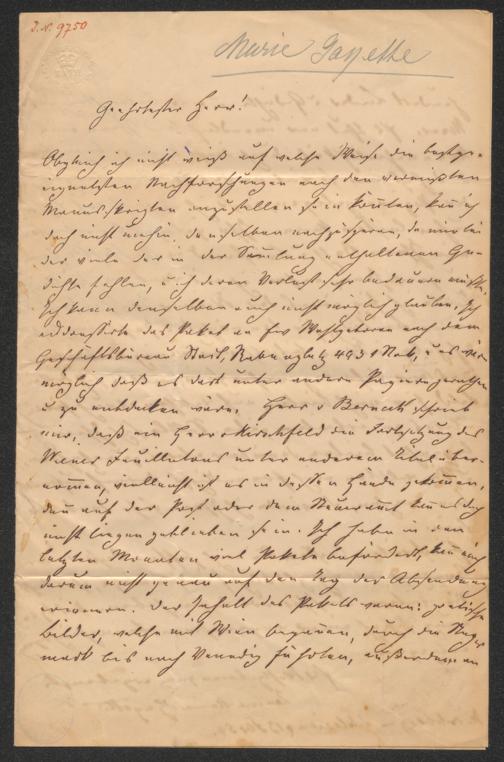 J.N. 9750
Marie Gayette
Geehrtester Herr!
Obgleich ich nicht weiß auf welche Weise die bestge-
eignetsten Nachforschungen nach den vermißten
Manuskripten anzustellen sein könten, kan ich
doch nicht umhin, denselben nachzuspüren, da mir bei
der viele der in der Samlung enthaltenen Ge-
dichte fehlen, u ich deren Verlust sehr bedauern müßte.
Ich kann denselben auch nicht möglich glauben. Ich
addressirte das Paket an Ew Wohlgeboren nach dem
Geschäftsbüreau Stadt, 493 u es wäre
möglich daß es dort unter andere Papiere gerathen
u zu entdecken wäre. Herr v Bernath schrieb
mir, daß ein Herr Kirschfeld die Fortsetzung des
Wiener Feuilletons unter anderem Titel über-
nommen, vielleicht ist es in dessen Hände gekommen,
den auf der Post oder dem Steueramt kan es doch
nicht liegen geblieben sein. Ich habe in den
letzten Monaten viel Pakete befördert, kan mich
darum nicht genau auf den Tag der Absendung
erinnern. Der Inhalt des Pakets waren: poetische
Bilder, welche mit Wien begannen, durch die Steyer-
mark bis nach Venedig führten, außerdem an